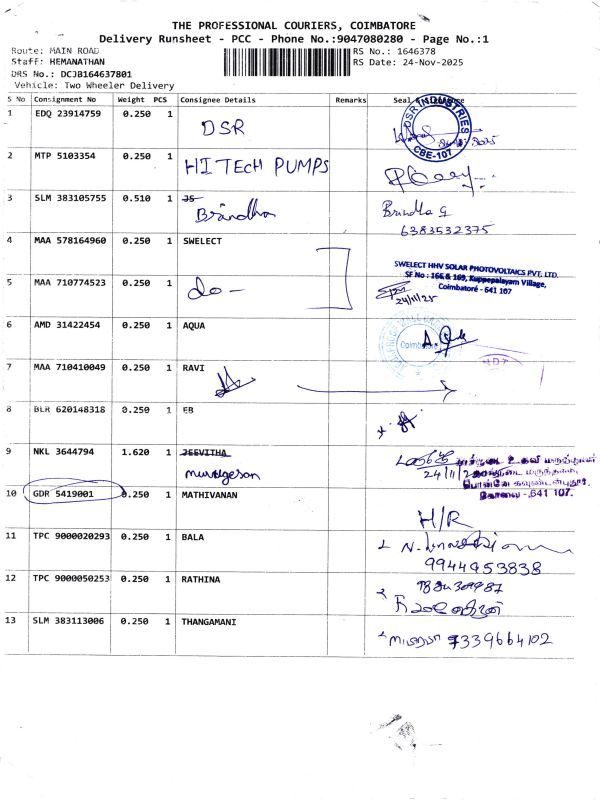 THE PROFESSIONAL COURIERS, COIMBATORE
Delivery Runsheet - PCC - Phone No.:9047080280 - Page No.:1
Route: MAIN ROAD
Staff: HEMANATHAN
DRS No.: DCJB164637801
Vehicle: Two Wheeler Delivery
RS No.: 1646378
RS Date: 24-Nov-2025
S No Consignment No Weight PCS Consignee Details Remarks Seal
1 EDQ 23914759 0.250 1 DSR
DSR INDUSTRIES
CBE-107
2 MTP 5103354 0.250 1 HITECH PUMPS
3 SLM 383105755 0.510 1 JS
Brindha Brindha G
6383532375
4 MAA 578164960 0.250 1 SWELECT
SWELECT HHV SOLAR PHOTOVOLTAICS PVT. LTD.
SF No : 166 & 169, Kuppepalayam Village,
Coimbatore - 641 107
5 MAA 710774523 0.250 1 do -
24/11/25
6 AMD 31422454 0.250 1 AQUA
Coimbatore
7 MAA 710410049 0.250 1 RAVI
8 BLR 620148318 0.250 1 EB
9 NKL 3644794 1.620 1 JEEVITHA
murugeson
உதவி மருத்துவர்
24/11/2
கோவை - 641 107.
10 GDR 5419001 0.250 1 MATHIVANAN
H/R
11 TPC 9000020293 0.250 1 BALA
9944953838
12 TPC 9000050253 0.250 1 RATHINA
13 SLM 383113006 0.250 1 THANGAMANI
7339664102